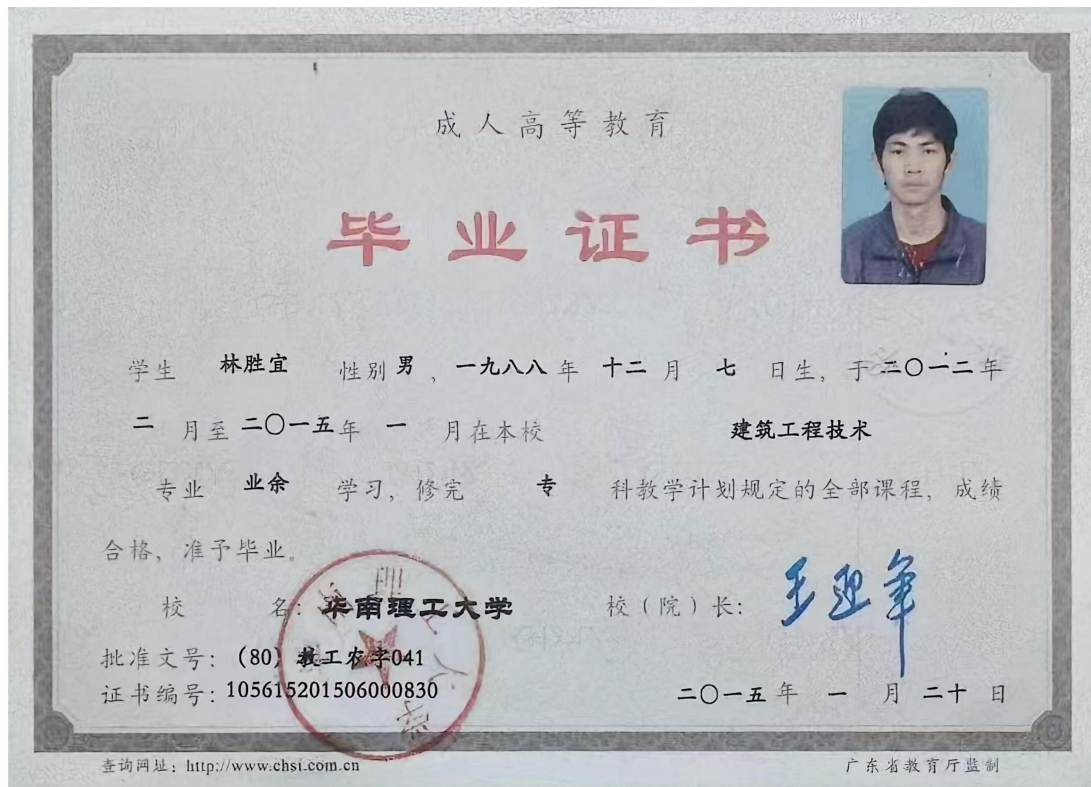 成人高等教育
毕业证书
学生 林胜宜 性别 男 ，一九八八 年 十二 月 七 日生，于 二〇一二 年
二 月至 二〇一五 年 一 月在本校 建筑工程技术
专业 业余 学习，修完 专 科教学计划规定的全部课程，成绩
合格，准予毕业。
校 名：华南理工大学 校（院）长：王迎军
批准文号：(80) 教工农字041
证书编号：105615201506000830 二〇一五 年 一 月 二十 日
查询网址：http://www.chsi.com.cn 广东省教育厅监制